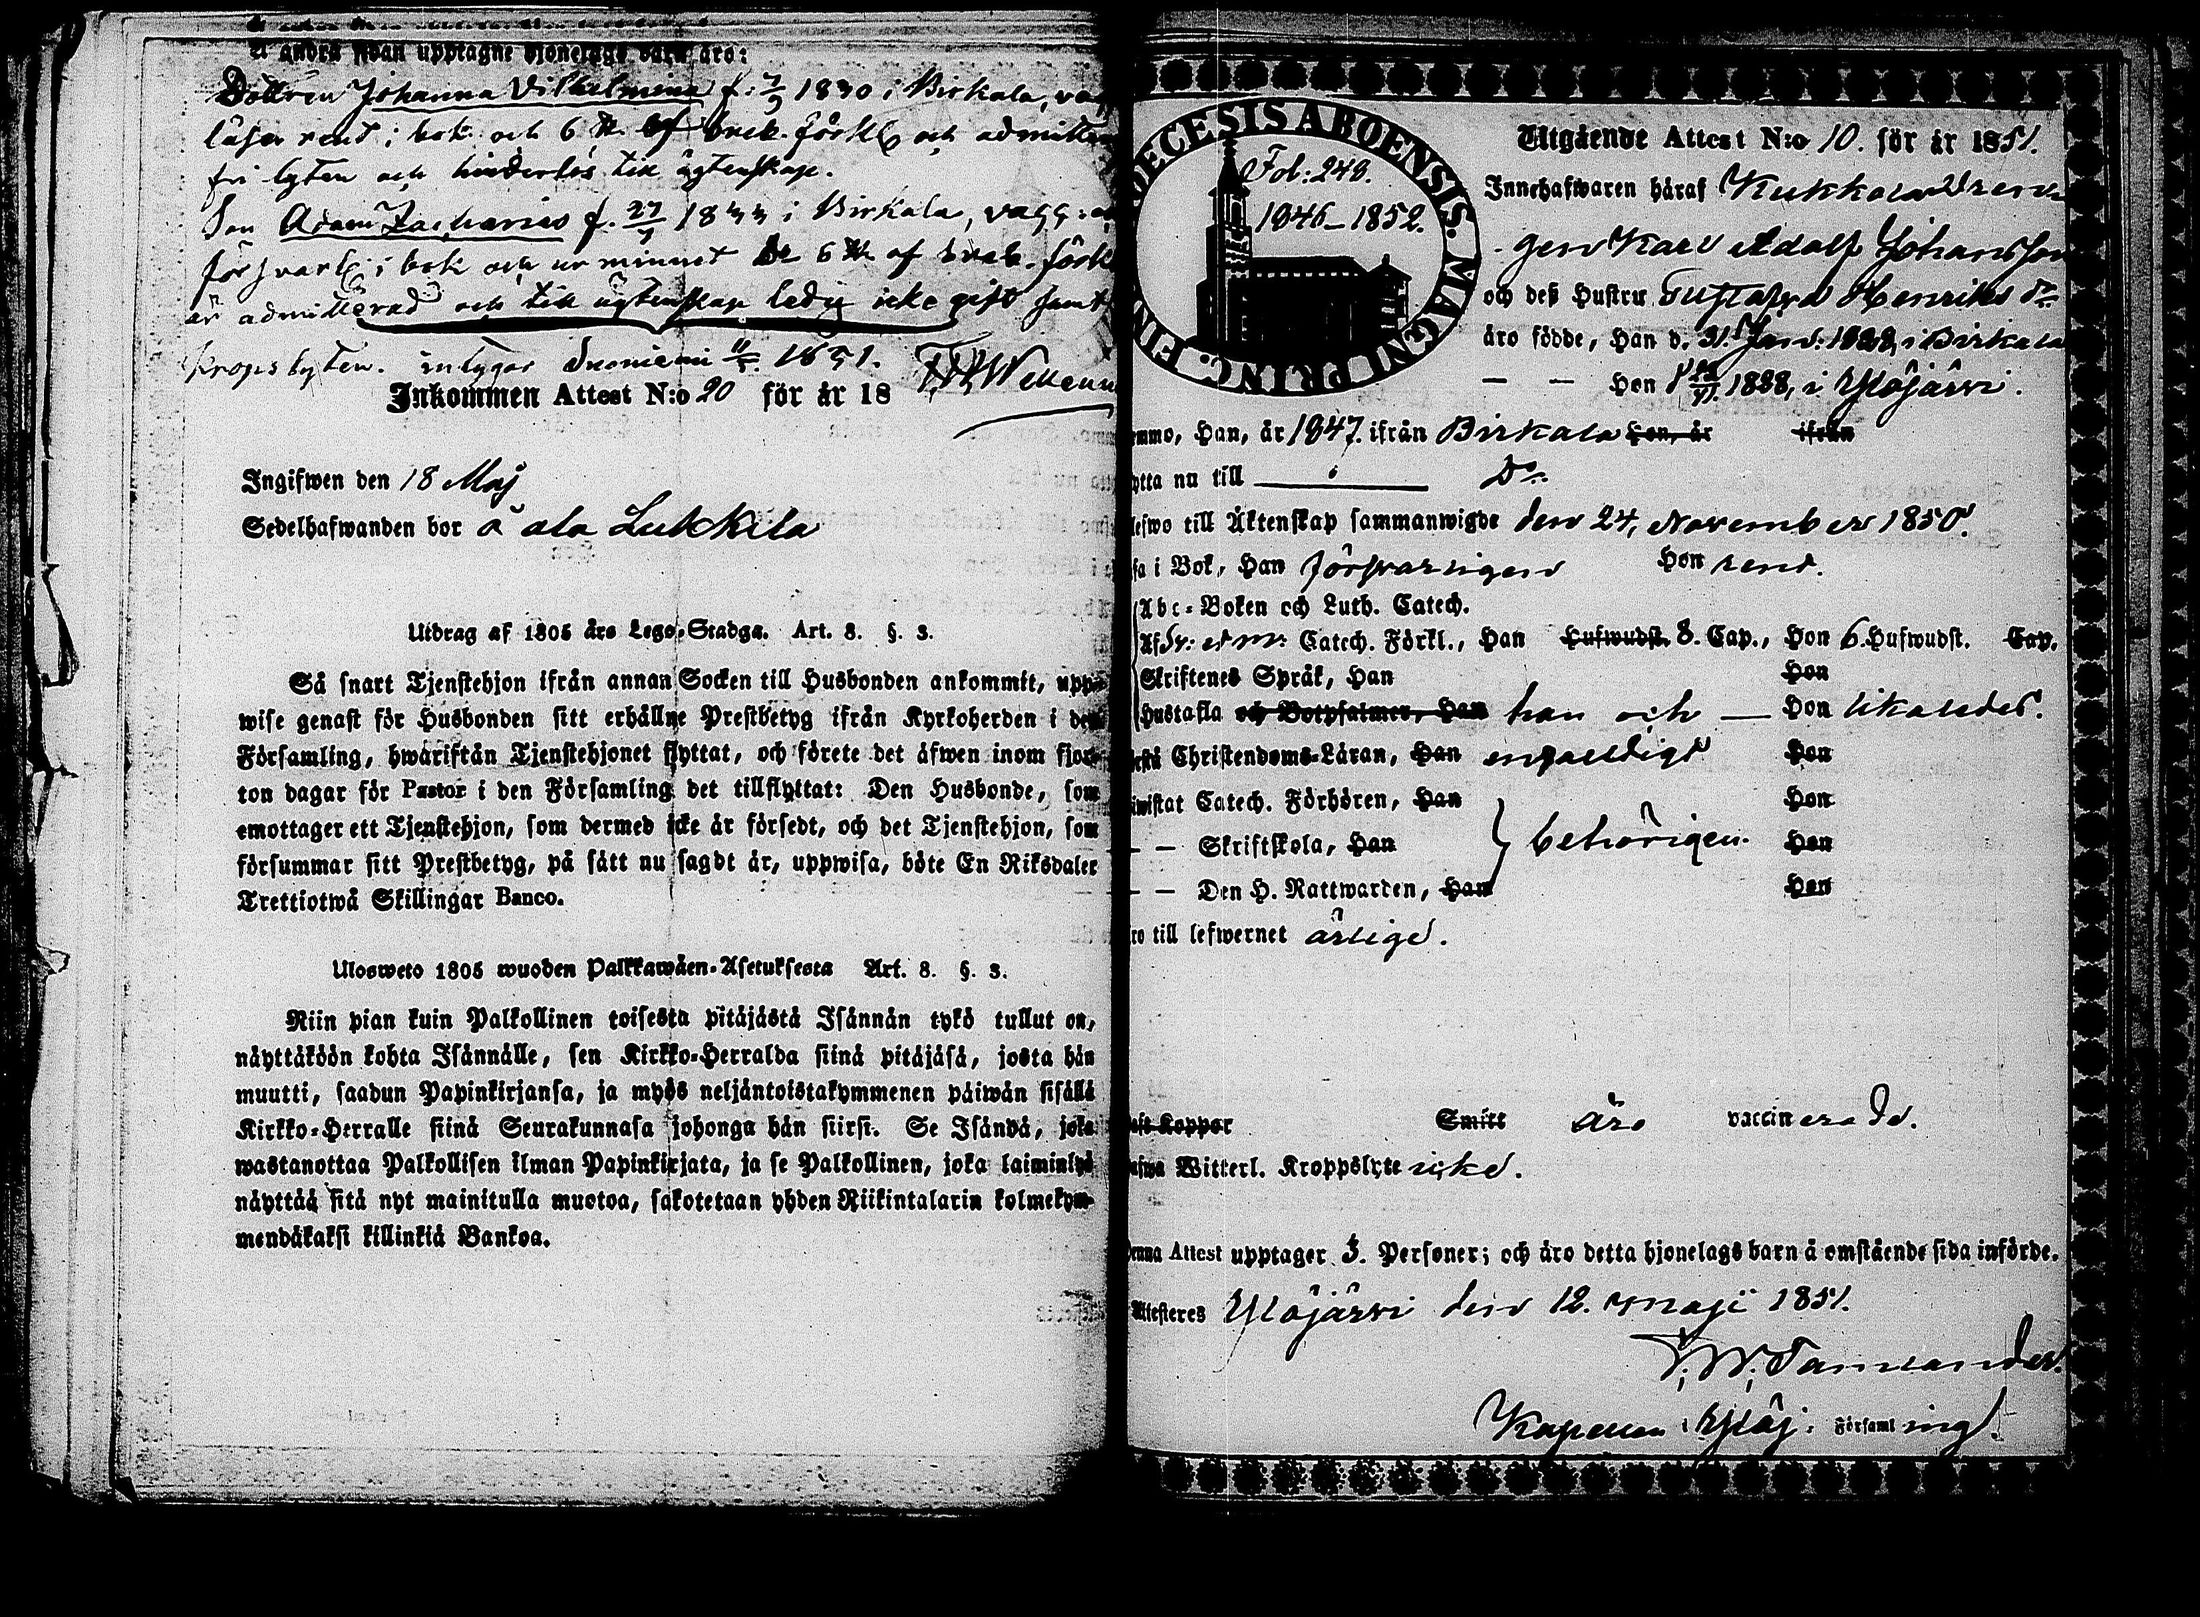 Å andra sidan upptagne hjonelags barn äro:
Dottren Johanna Vilhelmina f. 7/9 1830 i Birkala, va
läser rent i bok och 6 st. af förkl och admitter
fri lyten och hinderlös till ägtenskap.
Son Adam Zacharias f. 27/7 1833 i Birkala, vacc:
försvarl i bok och ur minnet 6 st af förkl
är admitterad och till ägtenskap ledig icke gift samt
kropslyten. intygar Suoniemi 1851.
Inkommen Attest N:o 20 för år 18
Ingifwen den 18 Maj
Sedelhafwanden bor å ala Lukkila
Utdrag af 1805 års Lego-Stadga. Art. 8. §. 3.
Så snart Tjenstehjon ifrån annan Socken till Husbonden ankommit, upp-
wise genast för Husbonden sitt erhållne Prestbetyg ifrån Kyrkoherden i den
Församling, hwarifrån Tjenstehjonet flyttat, och förete det äfwen inom fjor-
ton dagar för Pastor i den Församling det tillflyttat: Den Husbonde, som
emottager ett Tjenstehjon, som dermed icke är försedt, och det Tjenstehjon, som
försummar sitt Prestbetyg, på sätt nu sagdt är, uppwisa, böte En Riksdaler
Trettiotwå Skillingar Banco.
Ulosweto 1805 wuoden Palkkawäen-Asetuksesta Art. 8. §. 3.
Niin pian kuin Palkollinen toisesta pitäjästä Isännän tykö tullut on,
näyttäköön kohta Isännälle, sen Kirkko-Herralda siinä pitäjäsä, josta hän
muutti, saadun Papinkirjansa, ja myös neljäntoistakymmenen päiwän sisällä
Kirkko-Herralle siinä Seurakunnasa johonga hän siirsi. Se Isändä, joka
wastanottaa Palkollisen ilman Papinkirjata, ja se Palkollinen, joka laiminlyö
näyttää sitä nyt mainitulla muotoa, sakotetaan yhden Riikintalarin kolmekym-
mendäkaksi killinkiä Bankoa.
DECESIS ABOENSIS. MAGNI PRINC. FIN
Fol: 248.
1846–1852.
Utgående Attest N:o 10. för år 1851.
Innehafwaren häraf Kukkola Dren
gen Karl Adolf Johansson
och deß Hustru Gustafva Henriks dr
äro födde, Han d. 31. Jan: 1828, i Birkala
— — Hon 1828, i Ylöjärvi.
ommo, Han, år 1847. ifrån Birkala hon, år ifrån
ytta nu till Do
lefwo till Äktenskap sammanwigde den 24, November 1850.
sa i Bok, Han försvarligen Hon rent.
Abc-Boken och Luth. Catech.
Af Sv: Catech. Förkl., Han Hufwudst. 8. Cap., Hon 6. Hufwudst. Cap.
Skriftenes Språk, Han Hon
Hustafla och Botpsalmer, Han han och — Hon likaledes.
rstå Christendoms-Läran, Han enfaldigt Hon
iwistat Catech. Förhören, Han Hon
— — Skriftskola, Han behörigen. Hon
— — Den H. Nattwarden, Han Hon
ro till lefwernet ärlige.
aft Koppor Smitt äro vaccinerade.
afwa Witterl. Kroppslyte icke.
Denna Attest upptager 3. Personer; och äro detta hjonelags barn å omstående sida införde.
Attesteres Ylöjärvi den 12. Maji 1851.
Kapellan i Ylöj. Församling.